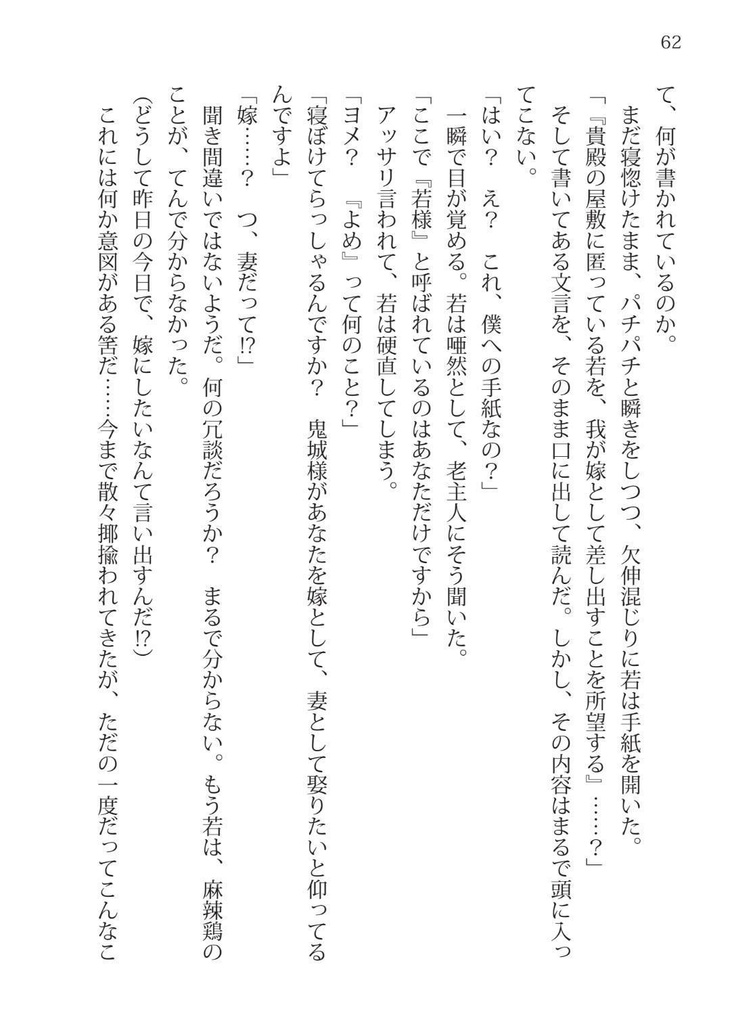 62
て、何が書かれているのか。
　まだ寝惚けたまま、パチパチと瞬きをしつつ、欠伸混じりに若は手紙を開いた。
「『貴殿の屋敷に匿っている若を、我が嫁として差し出すことを所望する』……？」
　そして書いてある文言を、そのまま口に出して読んだ。しかし、その内容はまるで頭に入っ
てこない。
「はい？　え？　これ、僕への手紙なの？」
　一瞬で目が覚める。若は唖然として、老主人にそう聞いた。
「ここで『若様』と呼ばれているのはあなただけですから」
　アッサリ言われて、若は硬直してしまう。
「ヨメ？　『よめ』って何のこと？」
「寝ぼけてらっしゃるんですか？　鬼城様があなたを嫁として、妻として娶りたいと仰ってる
んですよ」
「嫁……？　つ、妻だって⁉」
　聞き間違いではないようだ。何の冗談だろうか？　まるで分からない。もう若は、麻辣鶏の
ことが、てんで分からなかった。
（どうして昨日の今日で、嫁にしたいなんて言い出すんだ⁉）
　これには何か意図がある筈だ……今まで散々揶揄われてきたが、ただの一度だってこんなこ